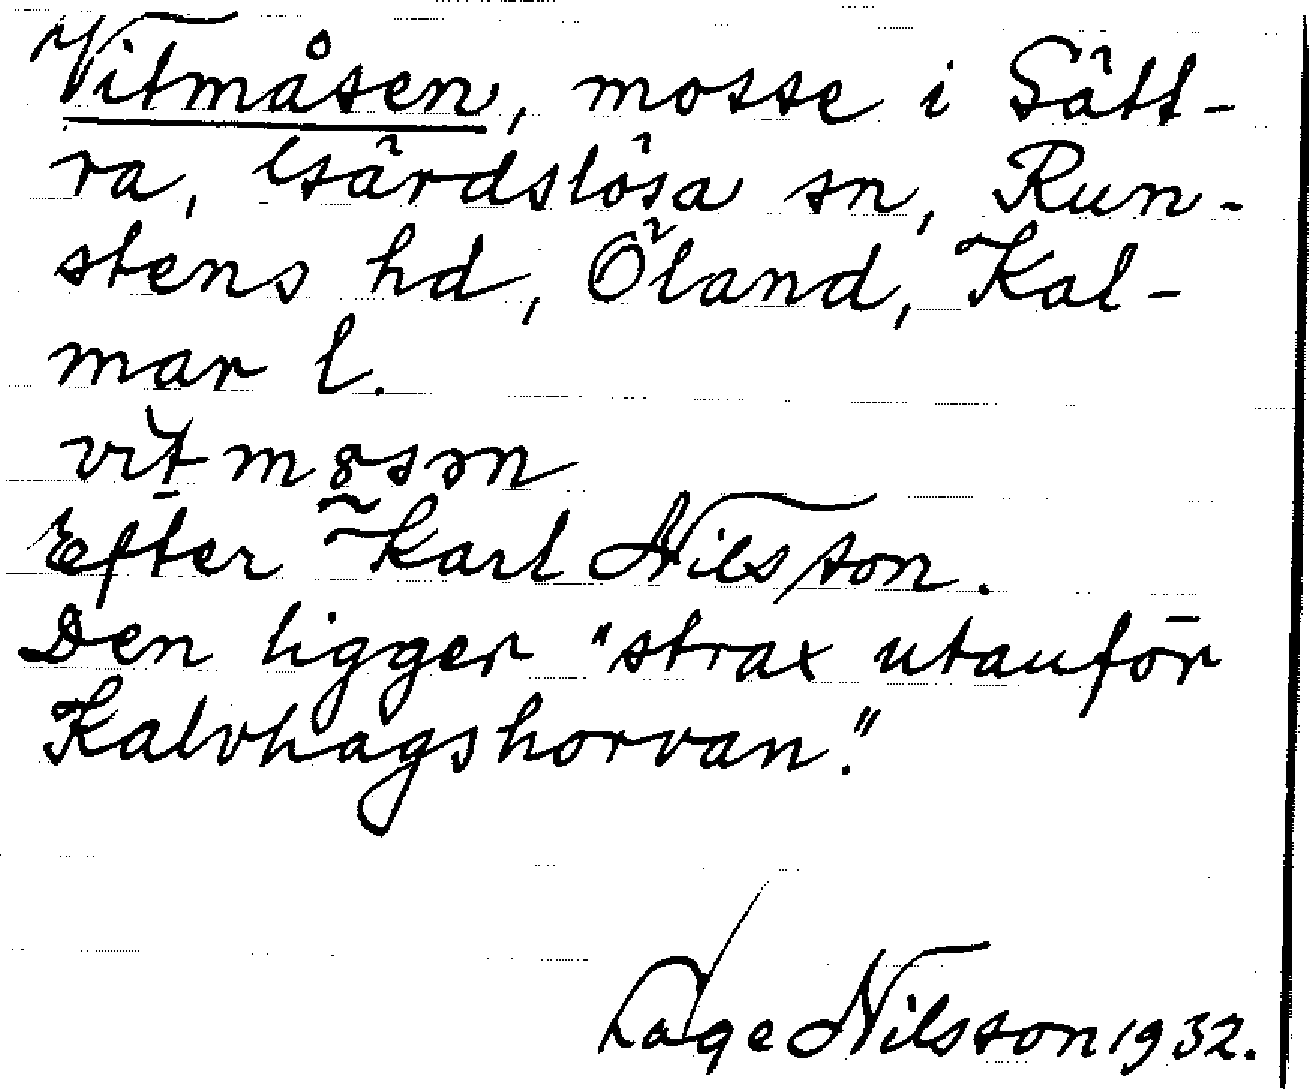 Vitmåsen, mosse i Sätt-
ra, Gärdslösa sn, Run-
stens hd, Öland, Kal-
mar l.
vitmsən
Efter Karl Nilsson.
Den ligger "strax utanför
Kalvhagshorvan."
Lage Nilsson 1932.